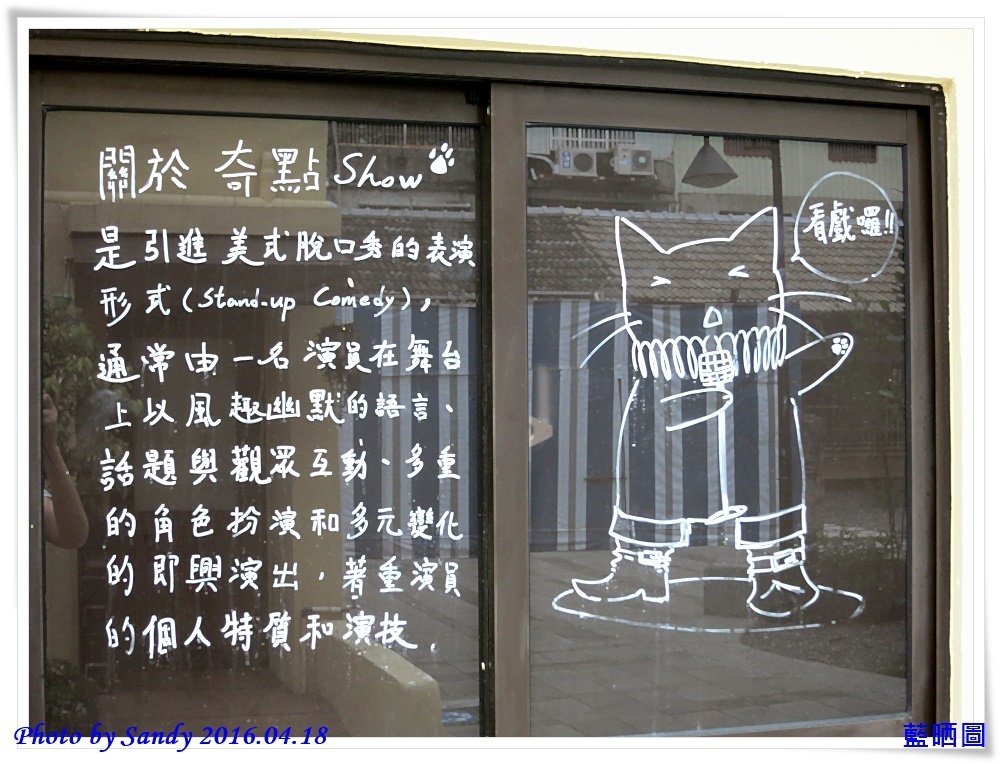 關於 奇點 Show
是引進美式脫口秀的表演
形式(Stand-up Comedy)，
通常由一名演員在舞台
上以風趣幽默的語言、
話題與觀眾互動、多重
的角色扮演和多元變化
的即興演出，著重演員
的個人特質和演技.
看戲囉!!
Photo by Sandy 2016.04.18
藍晒圖